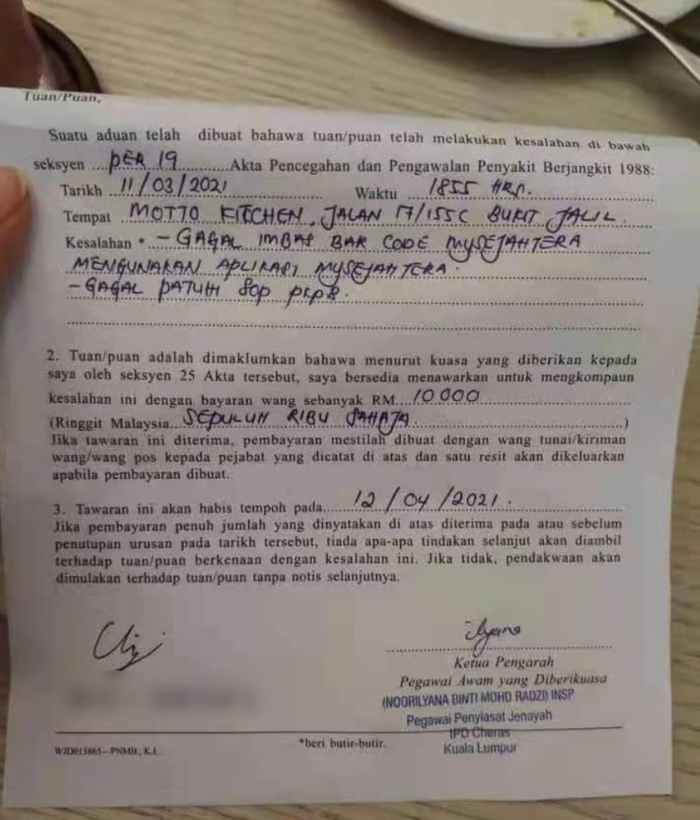 Tuan/Puan,
Suatu aduan telah dibuat bahawa tuan/puan telah melakukan kesalahan di bawah
seksyen ...PER 19...Akta Pencegahan dan Pengawalan Penyakit Berjangkit 1988:
Tarikh 11/03/2021 Waktu 1855 HRS.
Tempat MOTTO KITCHEN, JALAN 17/155C BUKIT JALIL.
Kesalahan * - GAGAL IMBAS BAR CODE MYSEJAHTERA
MENGUNAKAN APLIKASI MYSEJAHTERA.
- GAGAL PATUHI SOP PKPB.
2. Tuan/puan adalah dimaklumkan bahawa menurut kuasa yang diberikan kepada
saya oleh seksyen 25 Akta tersebut, saya bersedia menawarkan untuk mengkompaun
kesalahan ini dengan bayaran wang sebanyak RM...10 000
(Ringgit Malaysia...SEPULUH RIBU SAHAJA.)
Jika tawaran ini diterima, pembayaran mestilah dibuat dengan wang tunai/kiriman
wang/wang pos kepada pejabat yang dicatat di atas dan satu resit akan dikeluarkan
apabila pembayaran dibuat.
3. Tawaran ini akan habis tempoh pada...12/04/2021.
Jika pembayaran penuh jumlah yang dinyatakan di atas diterima pada atau sebelum
penutupan urusan pada tarikh tersebut, tiada apa-apa tindakan selanjut akan diambil
terhadap tuan/puan berkenaan dengan kesalahan ini. Jika tidak, pendakwaan akan
dimulakan terhadap tuan/puan tanpa notis selanjutnya.
Ketua Pengarah
Pegawai Awam yang Diberikuasa
(NOORILYANA BINTI MOHD RADZI) INSP
Pegawai Penyiasat Jenayah
IPD Cheras
Kuala Lumpur
*beri butir-butir.
WJD013865—PNMB, K.L.